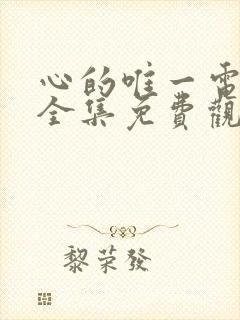 心的唯一電
全集免費觀
黎荣發